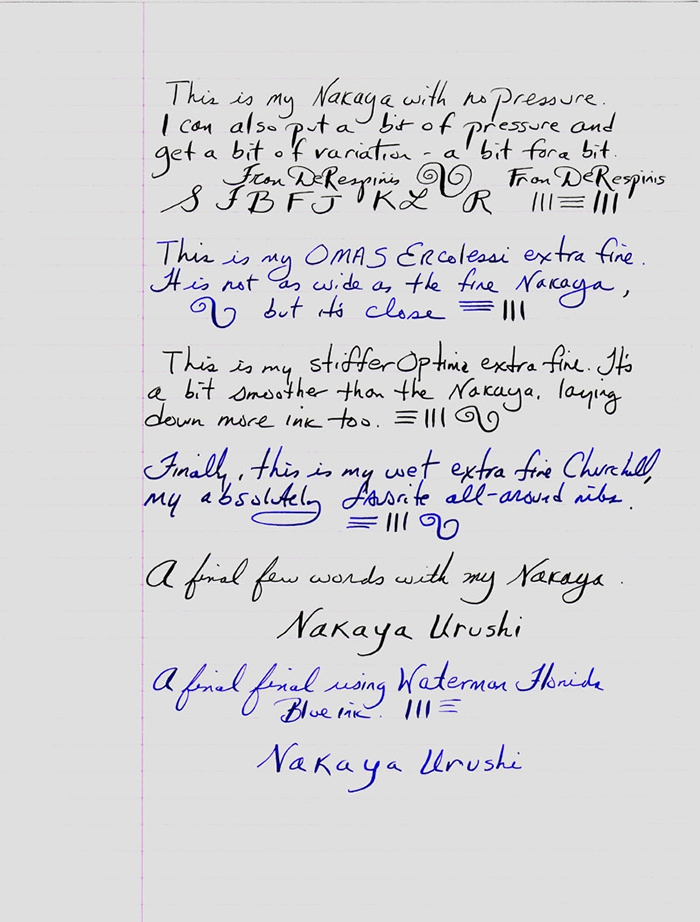 This is my Nakaya with no pressure.
I can also put a bit of pressure and
get a bit of variation - a bit for a bit.
From DeRespinis From DeRespinis
S I B F J K L R
This is my OMAS Ercolessi extra fine.
It is not as wide as the fine Nakaya,
but it's close
This is my stiffer Optima extra fine. It's
a bit smoother than the Nakaya, laying
down more ink too.
Finally, this is my wet extra fine Churchill,
my absolutely favorite all-around nibs.
A final few words with my Nakaya.
Nakaya Urushi
A final final using Waterman Florida
Blue ink.
Nakaya Urushi